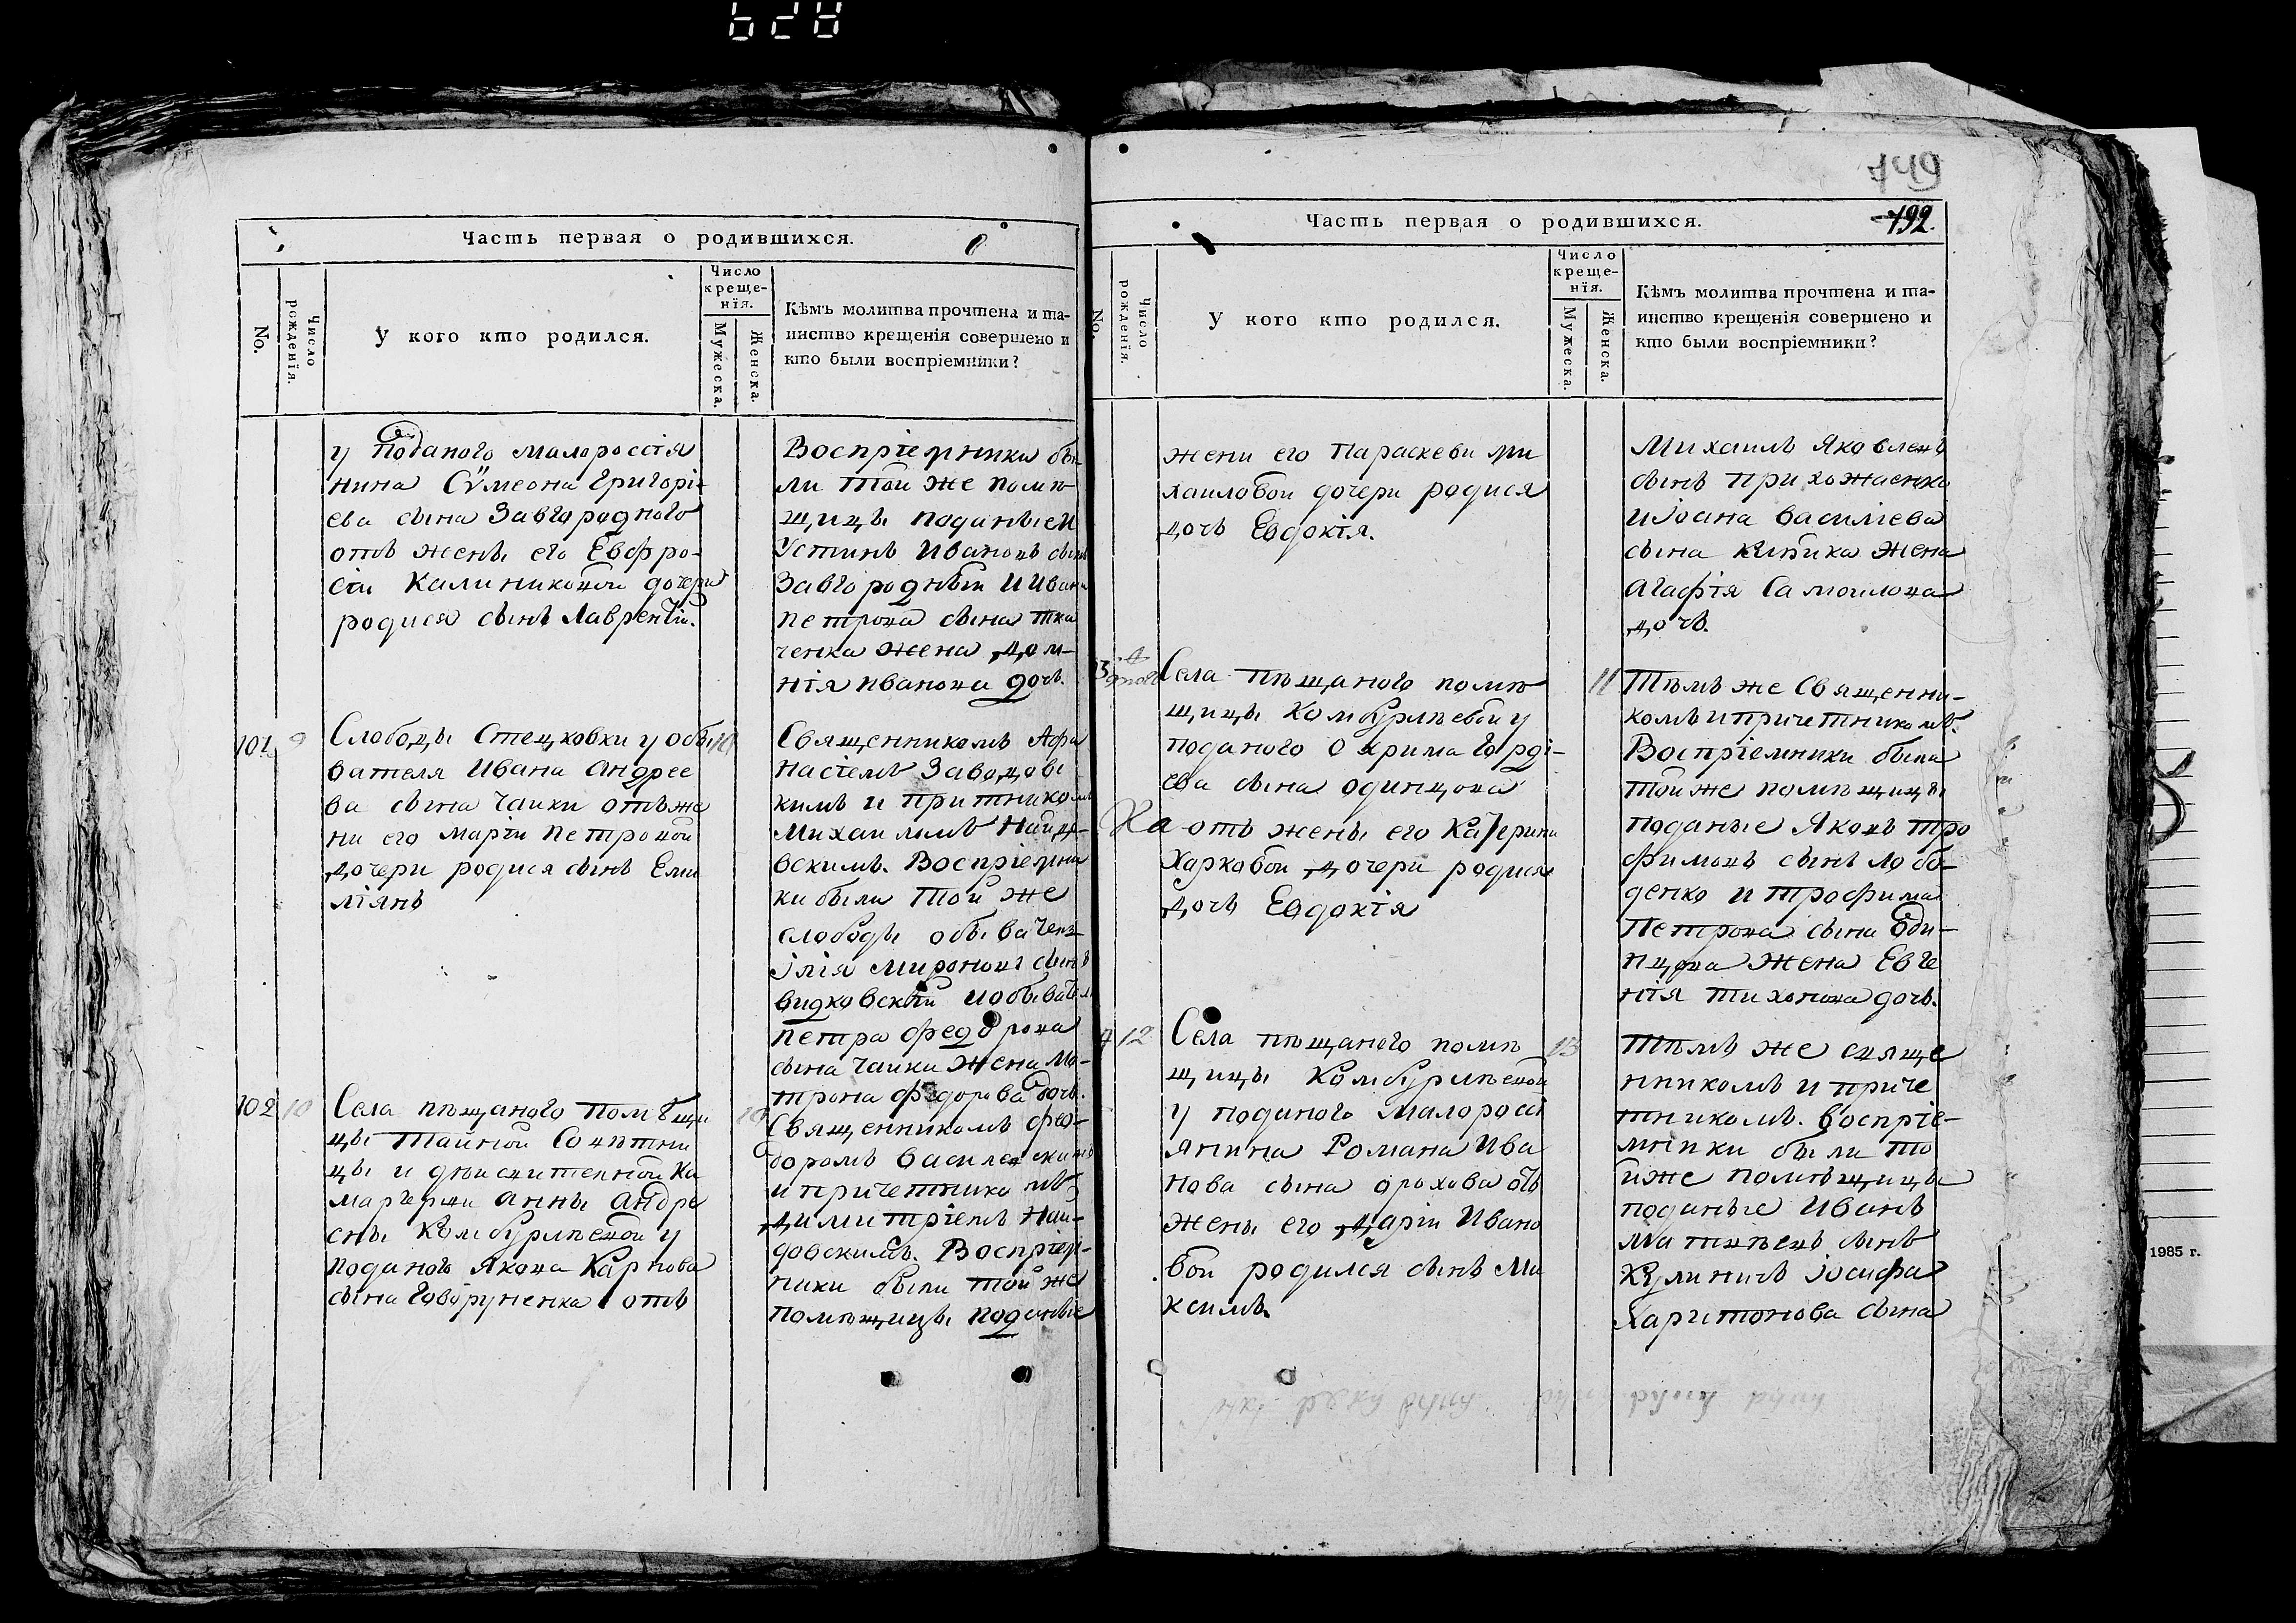 828
Часть первая о родившихся.
No.
Число рожденія.
У кого кто родился.
Число креще-нія.
Мужеска.
Женска.
Кѣмъ молитва прочтена и та-
инство крещенія совершено и
кто были воспріемники?
у поданого малороссія
нина Сѵмеона Григорі-
ева сына Завгородного
отъ жены его Евфро-
сіи Калиниковой дочери
родися сынъ Лаврентій.
Воспріемники бы-
ли той же помѣ
щицы поданыеи
Устинъ Ивановъ сынъ
Завгородный и Ивана
петрова сына тка
ченка жена дом-
нія иванова дочь.
101 9
Слободы Стецковки у обы 10
вателя Ивана Андрее
ва сына Чайки отъ же
ни его маріи петровой
дочери родися сынъ Еми
ліянъ
Священникомъ Афа
насіемъ Заводовс
кимъ и притником
Михаиломъ Найд-
вскимъ. Воспріемни
ки были той же
слободы обывател
ілія мироновъ сынъ
видковскій и обывателя
петра федорова
сына чайки жена Ма-
трона федорова дочь.
102 10
Села пѣщаного помѣщи 10
цы тайной Совѣтни
цы и дѣйсвителной Ка
мергерши анны андре
евы Комбурлѣевой у
поданого Якова Карпова
сына Говоруненка отъ
Священникомъ фео-
доромъ василевскимъ
и причетникомъ
димитріемъ Най-
довскимъ. Воспріем-
ники были той же
помѣщицы поданые
749
192.
Часть первая о родившихся.
No.
Число рожденія.
У кого кто родился.
Число креще-нія.
Мужеска.
Женска.
Кѣмъ молитва прочтена и та-
инство крещенія совершено и
кто были воспріемники?
жени его Параскеви ми
хаиловой дочери родися
дочь Евдокія.
Михаилъ Яковлевъ
сынъ прихоженко
и іоана василіева
сына кибика жена
агафія Самоилова
дочь.
3
Села пѣщаного помѣ 11
щицы Комбурлѣевой у
поданого Охрима Горді-
ева сына одинцова
отъ жены его Катерини
Харковой дочери родися
дочь Евдокія
Тѣмъ же Священни-
комъ и причетникомъ.
Воспріемники были
той же помѣщицы
поданые Яковъ тро
фимовъ сынъ лобо-
денко и трофима
Петрова сына Оди-
нцова жена Евге
нія тихонова дочь.
4 12
Села пѣщаного помѣ 13
щицы Комбурлѣевой
у поданого малороссі
янина Романа Ива
нова сына орехова отъ
жены его Даріи Ивано
вой родился сынъ Ма
ксимъ.
Тѣмъ же свяще
нникомъ и приче
тникомъ. воспріе-
мники были то
йже помѣщицы
поданые Иванъ
матвѣевъ сынъ
Кулиничъ іосифа
Харитонова сына
1985 г.